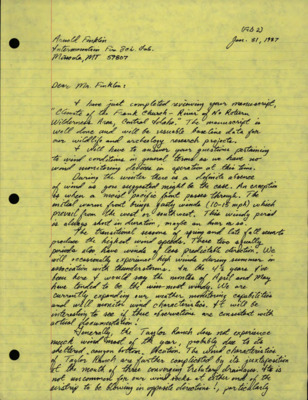 (Vib 2)
Arnold Finklin Jan. 31, 1987
Intermountain Fire Sch. Lab.
Missoula, MT 59807
Dear Mr. Finklin:
I have just completed reviewing your manuscript,
"Climate of the Frank Church - River of No Return
Wilderness Area, Central Idaho." The manuscript is
well done and will be valuable baseline data for
our wildlife and archeology research projects.
I will have to answer your questions pertaining
to wind conditions in general terms as we have no
wind monitoring devices in operation at this time.
During the winter there is a definite absence
of wind as you suggested might be the case. An exception
is when a moist pacific front passes through. The
initial warm front brings gusty winds (10-15 mph) which
prevail from the west or southwest. This windy period
is always short in duration, maybe an hour or so.
The transitional seasons of spring and late fall seem to
produce the highest wind speeds. These two
periods also have winds of less predictable direction. We
will occasionally experience high winds during summer in
association with thunderstorms. In the 4½ years I've
been here I would say the months of April and May
have tended to be the wind-most windy. We are
currently expanding our weather monitoring capabilities
and will monitor wind characteristics. It will be
interesting to see if these observations are consistent with
actual documentation!
Generally, the Taylor Ranch does not experience
much wind most of the year, probably due to its
sheltered canyon bottom location. The wind characteristics
of Taylor Ranch are further complicated by its juxtaposition
at the mouth of three converging tributary drainages. It is
not uncommon for our wind socks at either end of the
airstrip to be blowing in opposite directions!, particularly